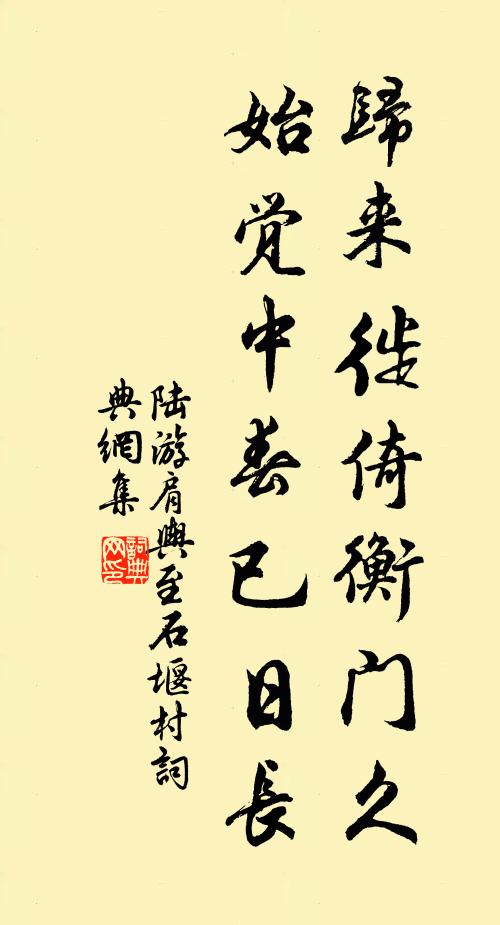 歸来徙倚衡門久
始覚中春已日長
陆游肩輿至石堰村詞
典網集
詞典网印